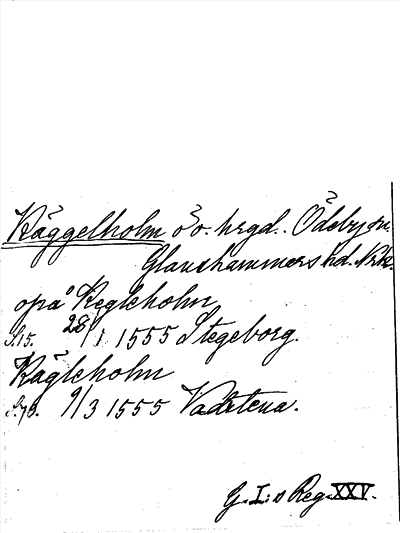 Käggelholm ö o. hrgd. Ödeby sn.
Glanshammers hd. Nrk.
opå Kegleholm
S. 15. 28/1 1555 Stegeborg.
Kägleholm
S. 73. 9/3 1555 Vadstena.
G. I:s Reg. XXV.